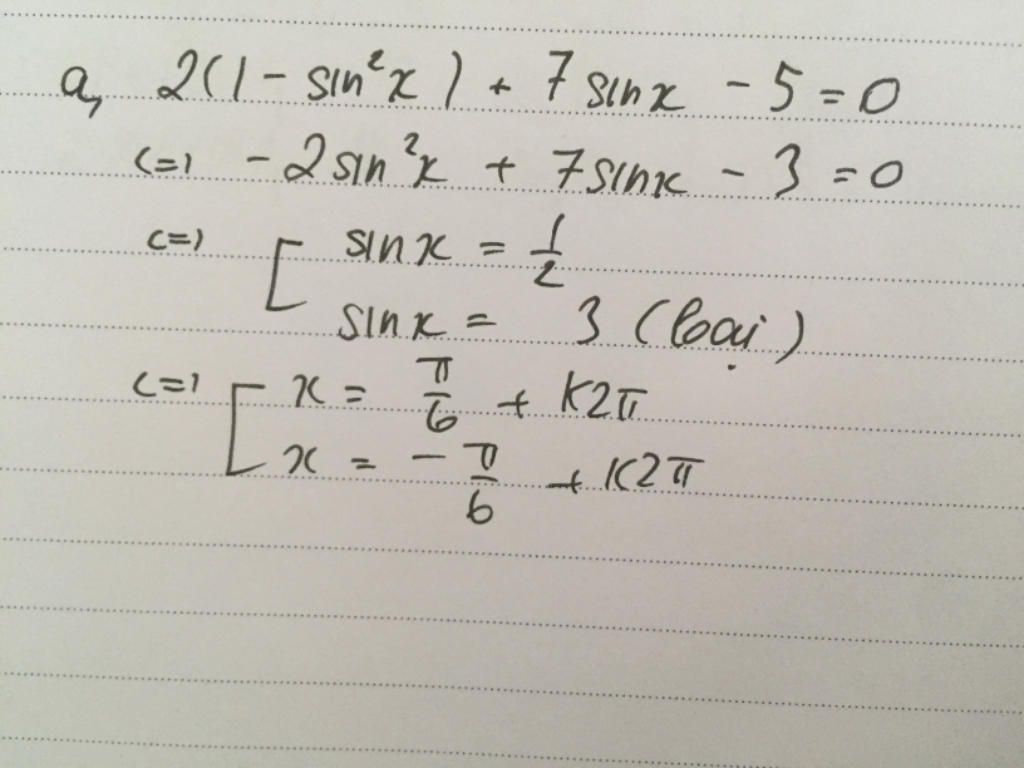 a, 2(1 - sin²x) + 7 sinx - 5 = 0
<=> -2 sin²x + 7 sinx - 3 = 0
<=> [ sinx = 1/2
sinx = 3 (loại)
<=> [ x = π/6 + K2π
x = -π/6 + K2π